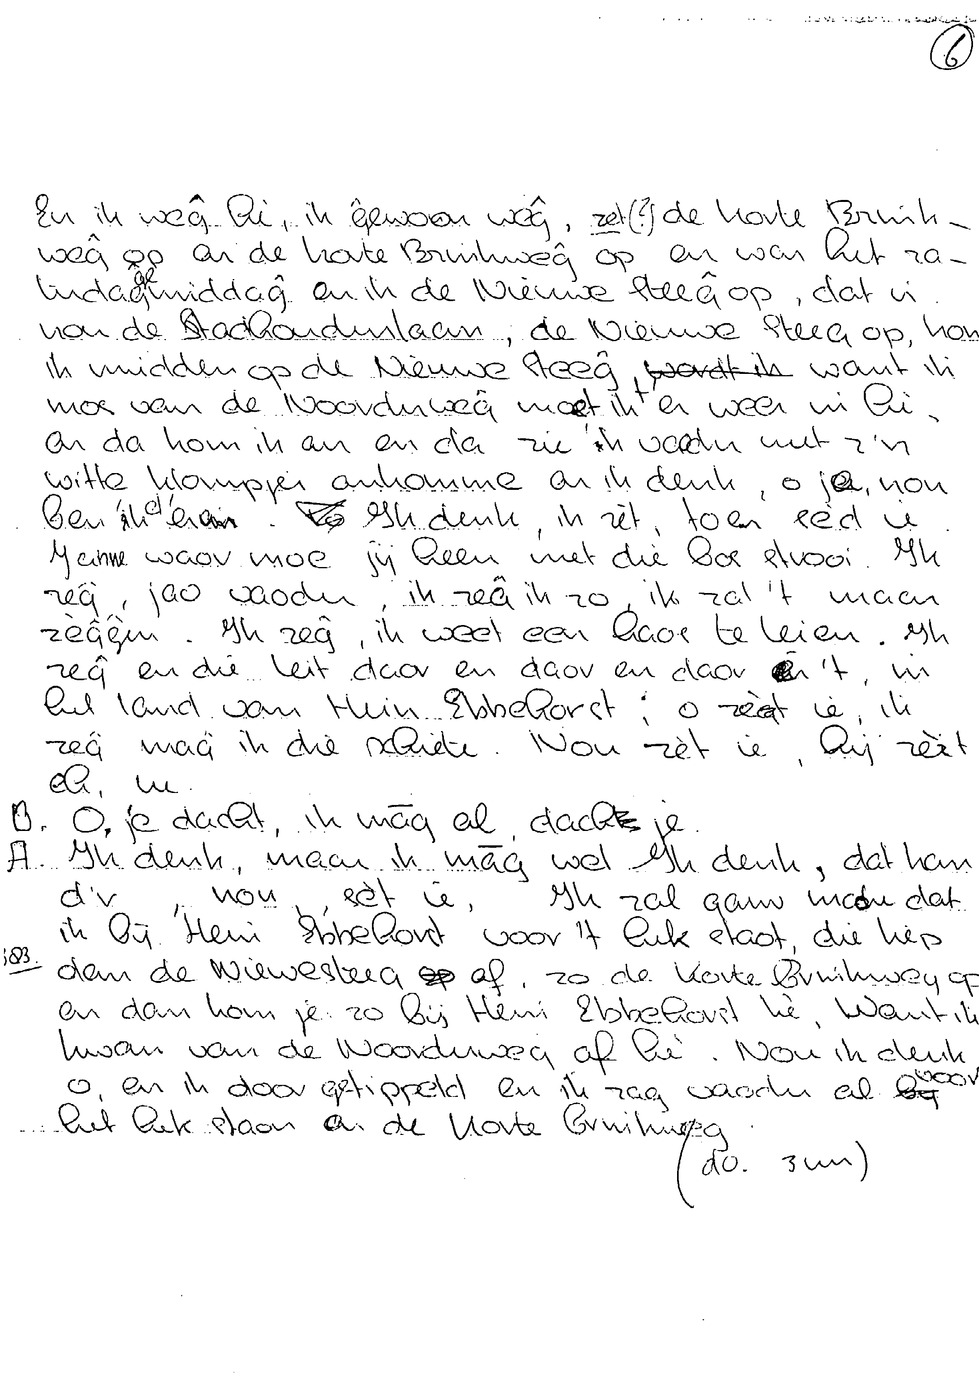 6
En ik wêĝ hè, ik ĝewoon wêĝ, zet(?) de korte Bruink-
weĝ op an de korte Bruinkweĝ op en was het za-
tusdaĝgemiddaĝ en ik de Nieuwe Steeĝ op, dat is
van de Stadhouderslaan, de Nieuwe Steeg op, kom
ik midden op de Nieuwe Steeĝ, want ik
mos van de Noorderweĝ moet ik t er weer in hè,
an da kom ik an en da zie 'ik vaoder met z'n
witte klompjes ankomme an ik denk, o ja, nou
ben 'ik d'eran. Ik denk, ik zèt, toen sèd ie
Janne waor moe jij heen met die bos strooi. Ik
zeĝ, jao vaoder, ik zeĝ ik zo, ik zal 't maar
zèĝĝen. Ik zeĝ, ik weet een haos te leien. Ik
zeĝ en die leit daor en daor en daor in 't, in
het land van Hein Ebbehorst; o zèèt ie, ik
zeĝ maĝ ik die schiete. Nou zèt ie, hij zèèt
eh, nee.
B. O, je dacht, ik māg al, dacht je.
A. Ik denk, maar ik māg wel Ik denk, dat kan
d'r, nou, sèt ie, Ik zal gauw maken dat
ik bij Hein Ebbehorst voor 't hek staot, die liep
383.
dan de Niewesteeg af, zo de Korte Bruinkweg op
en dan kom je zo bij Hein Ebbehorst hè, Want ik
kwam van de Noorderweg af hè. Nou ik denk
o, en ik door getippeld en ik zag vaoder al voor
het hek staon an de Korte Bruinkweg.
(do. 3 un)